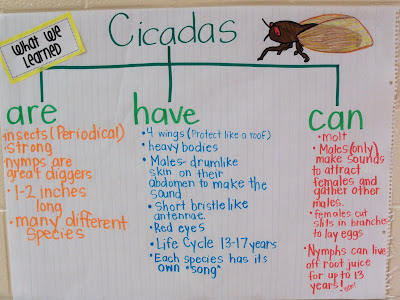 What We
Learned
Cicadas
are
insects (Periodical)
strong
nymps are
great diggers
1-2 inches
long
many different
species
have
4 wings (Protect like a roof)
heavy bodies
Males- drumlike
skin on their
abdomen to make the
sound
Short bristle like
antennae.
Red eyes
Life Cycle 13-17 years
Each species has its
own "song"
can
molt
Males (only)
make sounds
to attract
females and
gather other
males.
females cut
slits in branches
to lay eggs
Nymphs can live
off root juice
for up to 13
years!